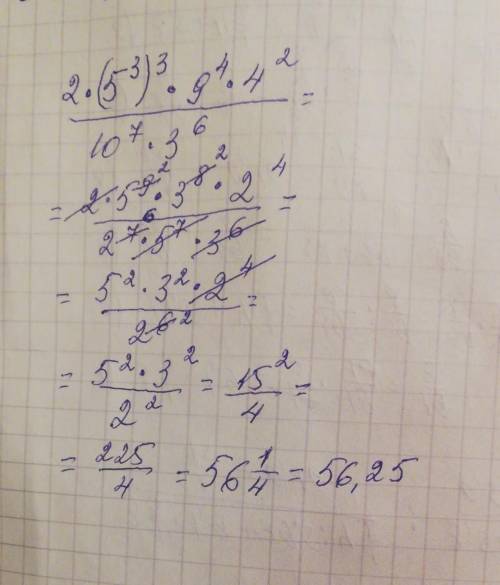 2·(5³)³·9⁴·4² / 10⁷·3⁶ =
= 2·5⁹²·3⁸²·2⁴ / 2⁷⁶·5⁷·3⁶ =
= 5²·3²·2⁴ / 2⁶² =
= 5²·3² / 2² = 15² / 4 =
= 225/4 = 56 1/4 = 56,25